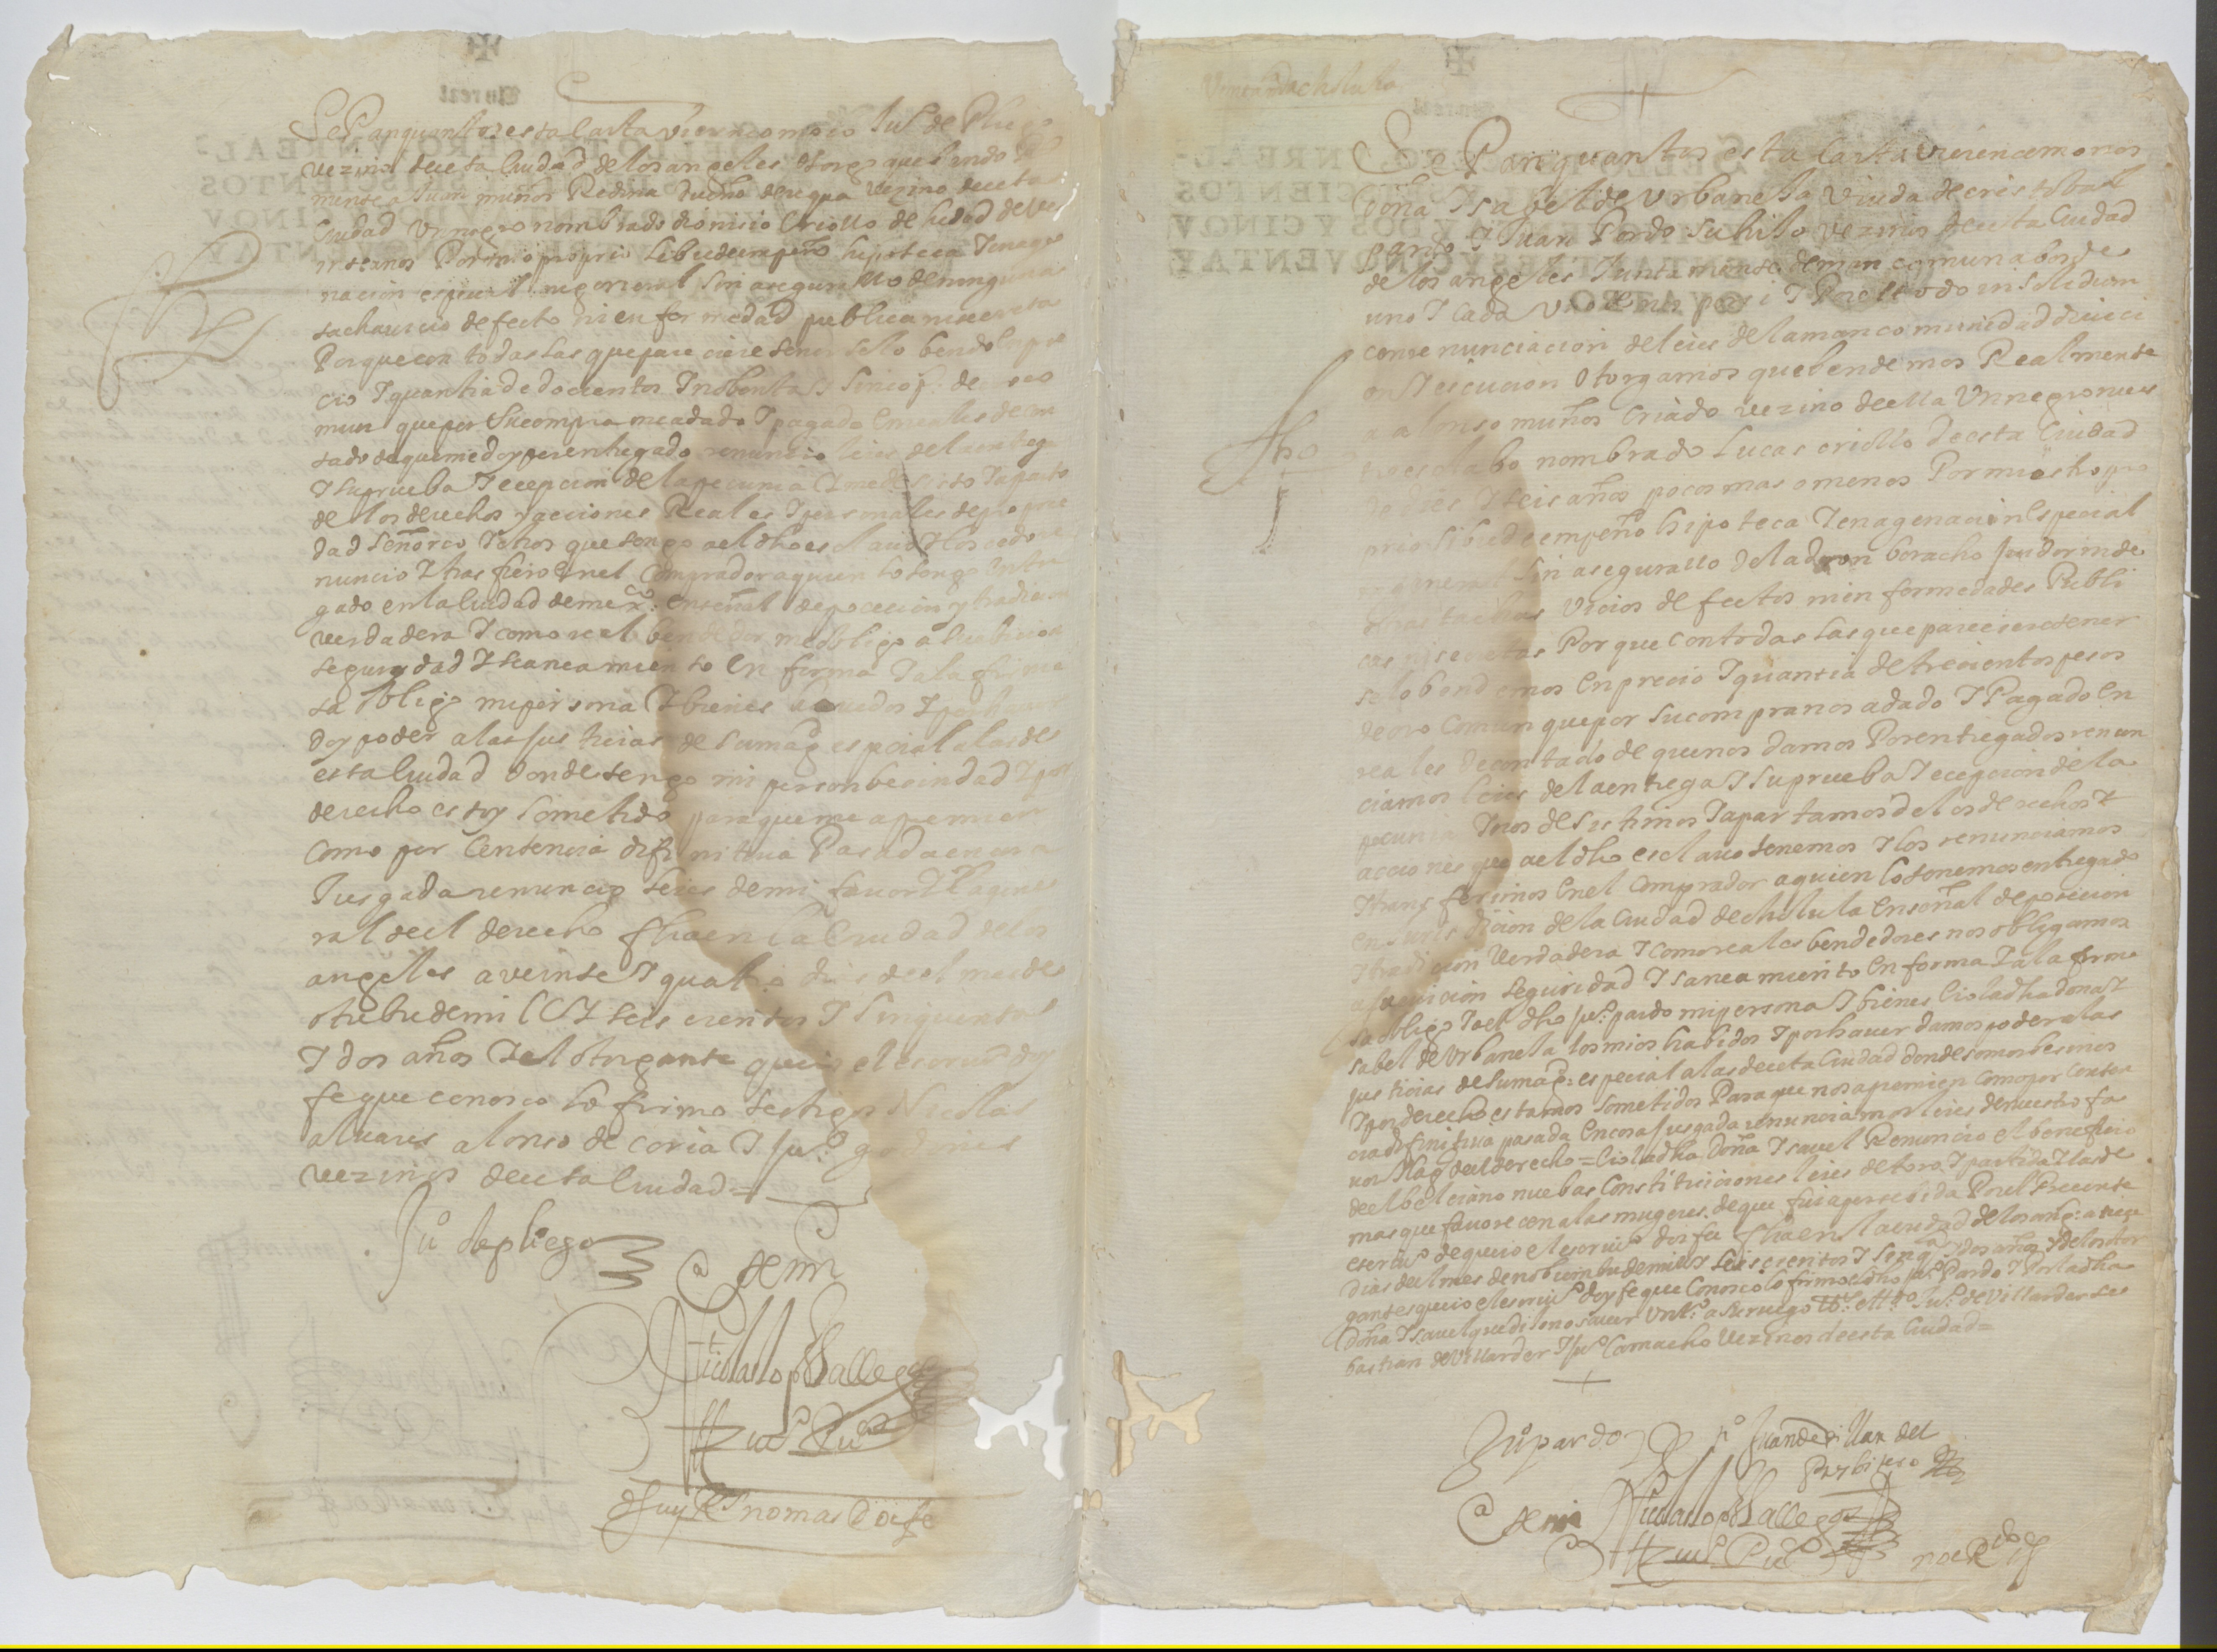 Sepan quantos esta Carta vieren como io Juº de Pliego
vezino decsta Ciudad de los angeles otorgo que bendo Real
mente a Juan muños Redina dueño de requa vezino decsta
Ciudad Vn negro nombrado dionicio Criollo de hedad de
años Por mio proprio libre de empeño hipoteca Tenage
nacion especial ni general sin asegurallo de ninguna
tacha vicio defecto ni enfermedad publica ni secreta
Porque con todas las que pareciere tener se lo bendo En pre
cio T quantia de docientos T nobenta T Sinco ps de oro
mun que por Su compra me a dado T pagado En reales de con
tado de que me doy por entregado renuncio leies de la entrega
T su prueba T ecepcion de la pecunia T me desisto T aparto
de los derechos y acciones Reales T personales de propie
dad señorio T otros que tengo a el dho esclauo T los sedo re
nuncio T tras fiero En el Comprador a quien lo tengo entre
gado en la Ciudad de mexco En señal de pocecion y tradicion
verdadera T como real bendedor me obligo a la ebiccion
seguridad T saneamiento En forma T a la firme
sa obligo mi persona T bienes hauidos T por hauer
doy poder a las justicias de su magd especial a las de
esta Ciudad donde tengo mi becindad T por
derecho estoy sometido para que me apremien
como por Sentencia difinitiua Pasada en cosa
Jusgada renuncio leies de mi fauor T la gene
ral del derecho fha en la Ciudad de los
angeles a veinte T quatro dias de el mes de
otubre de mil T seis cientos T Sinquenta
T dos años T el otorgante que io el escriuº doy
fe que conosco lo firmo testigos Nicolas
aluares alonso de coria T Juº godines
vezinos decsta Ciudad=
Juº de pliego
Ante mi
Nicolas lopes Gallegos
escriuº Puco
no mas Doi fe
Venta en la de cholula
Sepan quantos esta Carta vieren como nos
Doña Isabel de Vrbaneta Viuda de cristobal
pardo T Juan Pardo su hijo vezinos decsta Ciudad
de los angeles Juntamente de man comun a bos de
uno T Cada Vno de nos por si T Por el todo in Solidum
con renunciacion de leies de la mancomunidad diuici
on T escucion Otorgamos que bendemos Realmente
a alonso muños Criado vezino de ella Vn negro nues
tro esclabo nombrado Lucas criollo decsta Ciudad
de dies T seis años pocos mas o menos Por nuestro pro
prio libre de empeño hipoteca Tenagenacion Especial
ni general sin asegurallo de ladron boracho juidor ni de
otras tachas vicios defectos ni enfermedades Publi
cas ni secretas Porque con todas las que pareciere tener
se lo bendemos En precio T quantia de trecientos pesos
de oro Comun que por su compra nos a dado T Pagado En
reales de contado de que nos damos Por entregados renun
ciamos leies de la entrega T su prueba T ecepcion de la
pecunia T nos desistimos T apartamos de los derechos T
acciones que a el dho esclauo tenemos T los renunciamos
T trans ferimos En el Comprador a quien lo tenemos entregado
En Juris dicion de la Ciudad de cholula En señal de pocecion
T tradicion Verdadera T como reales bendedores nos obligamos
a la ebiccion seguridad T saneamiento En forma T a la firme
sa obligo Io el dho Juº pardo mi persona T bienes E io la dha dona I
sabel de Vrbaneta los mios habidos T por hauer damos poder a las
justicias de su magd especial a las decsta Ciudad donde somos besinos
T por derecho estamos sometidos Para que nos apremien como por senten
cia difinitiua pasada en cosa jusgada renunciamos leies de nuestro fa
uor T la gl del derecho= E io la dha Doña Isauel Renuncio el beneficio
de el beleiano nuebas Constituiciones leies de toro T partida T las de
mas que fauorecen a las mugeres de que fui apersebida Por el Presente
escriuº de que io el escriuº doi fe fha en la ciudad de los angs a trese
dias del mes de nobiembre de mil T seiscientos T Sinqta T dos años T de los otor
gantes que io el escriuº doy fe que conosco lo firmo el dho Juº Pardo T Por la dha
doña Isauel que dijo no sauer Vn tº a su ruego tsº el Br Juº de Villarder se
bastian de Villarder T Juº Camacho Vezinos decsta Ciudad=
Juº pardo
tº Juan de villar del
Presbitero
Ante mi Nicolas lopes Gallegos
escriuº Puco